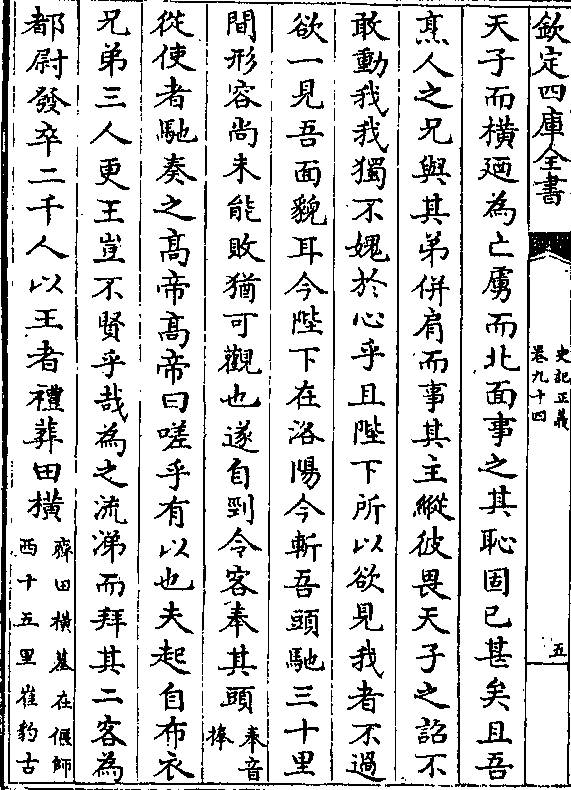 欽定四庫全書
史記正義
卷九十四
五
天子而橫廼為亡虜而北面事之其恥固已甚矣且吾
烹人之兄與其弟併肩而事其主縱彼畏天子之詔不
敢動我我獨不媿於心乎且陛下所以欲見我者不過
欲一見吾面貌耳今陛下在洛陽今斬吾頭馳三十里
間形容尚未能敗猶可觀也遂自剄令客奉其頭奉音
捧
從使者馳奏之高帝高帝曰嗟乎有以也夫起自布衣
兄弟三人更王豈不賢乎哉為之流涕而拜其二客為
都尉發卒二千人以王者禮葬田橫齊田橫墓在偃師
西十五里崔豹古